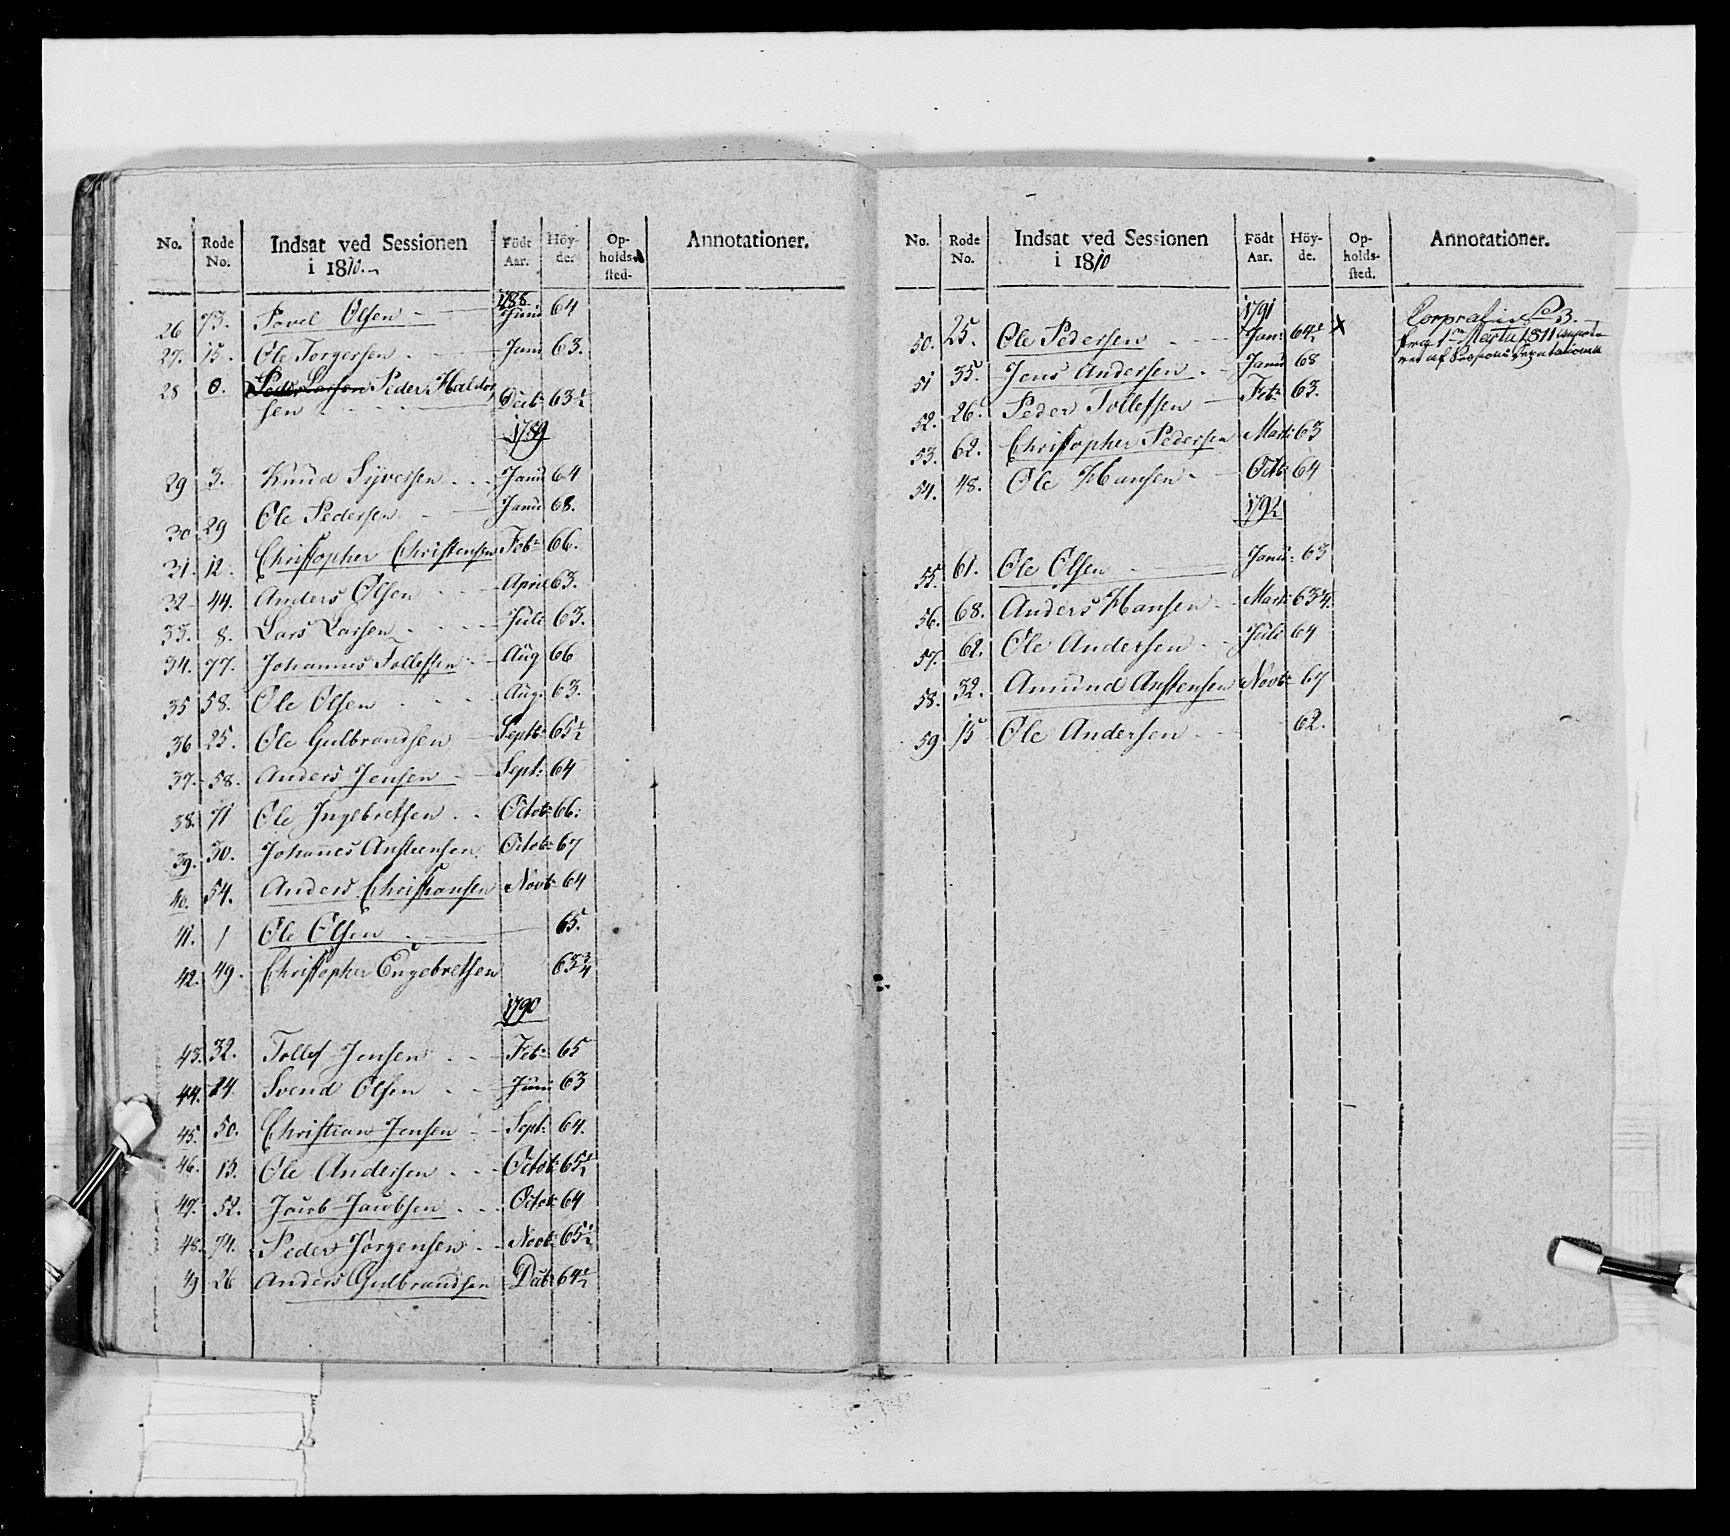 No. Rode No. Indsat ved Sessionen i 1810. Födt Aar. Höyde. Opholdssted. Annotationer.
1788
26 73. Povel Olsen Junii 64
27. 15. Ole Torgersen Juni 63.
28 0. Peder Larsen Peder Haldor
sen Decb: 63½
1789
29 3. Knud Syversen Janu 64
30. 29 Ole Pedersen Janu 68.
31. 12. Christopher Christensen Feb: 66.
32 44. Anders Olsen April 63.
33. 8. Lars Larsen Juli 63.
34. 77. Johannes Tollefsen Aug 66
35 58. Ole Olsen Aug. 63.
36 25. Ole Gulbrandsen Septb: 65½
37. 58. Anders Jensen Sept: 64
38. 71 Ole Ingebretsen Octob: 66.
39. 30. Johannes Anstensen Octob: 67
40. 54. Anders Christiansen Novb: 64
41. 1 Ole Olsen 65.
42. 49. Christopher Engebretsen 63¾
1790
43. 32. Tollef Jensen Feb: 65
44. 14. Svend Olsen Juni 63
45. 50. Christian Jensen Sept: 64.
46. 13. Ole Andersen Octob: 65½
47. 52. Jacob Jacobsen Octob: 64
48. 74. Peder Jørgensen Novb: 65½
49 26 Anders Gulbrandsen Decb: 64½
No. Rode No. Indsat ved Sessionen i 1810 Födt Aar. Höyde. Opholdssted. Annotationer.
1791
50. 25. Ole Pedersen Jan: 64½ x Corporal No 3.
fra 1 Martz 1811
af Sessions Deputationen
51 35. Jens Andersen Janu 68
52. 26. Peder Tollefsen Feb: 63.
53. 62. Christopher Pedersen Mart: 63
54. 48. Ole Hansen Octb 64
1792
55. 61. Ole Olsen Janu: 63
56. 68. Anders Hansen Mart: 63¾.
57. 62. Ole Andersen Juli 64
58. 32. Amund Anstensen Novb: 67
59 15 Ole Andersen 62.